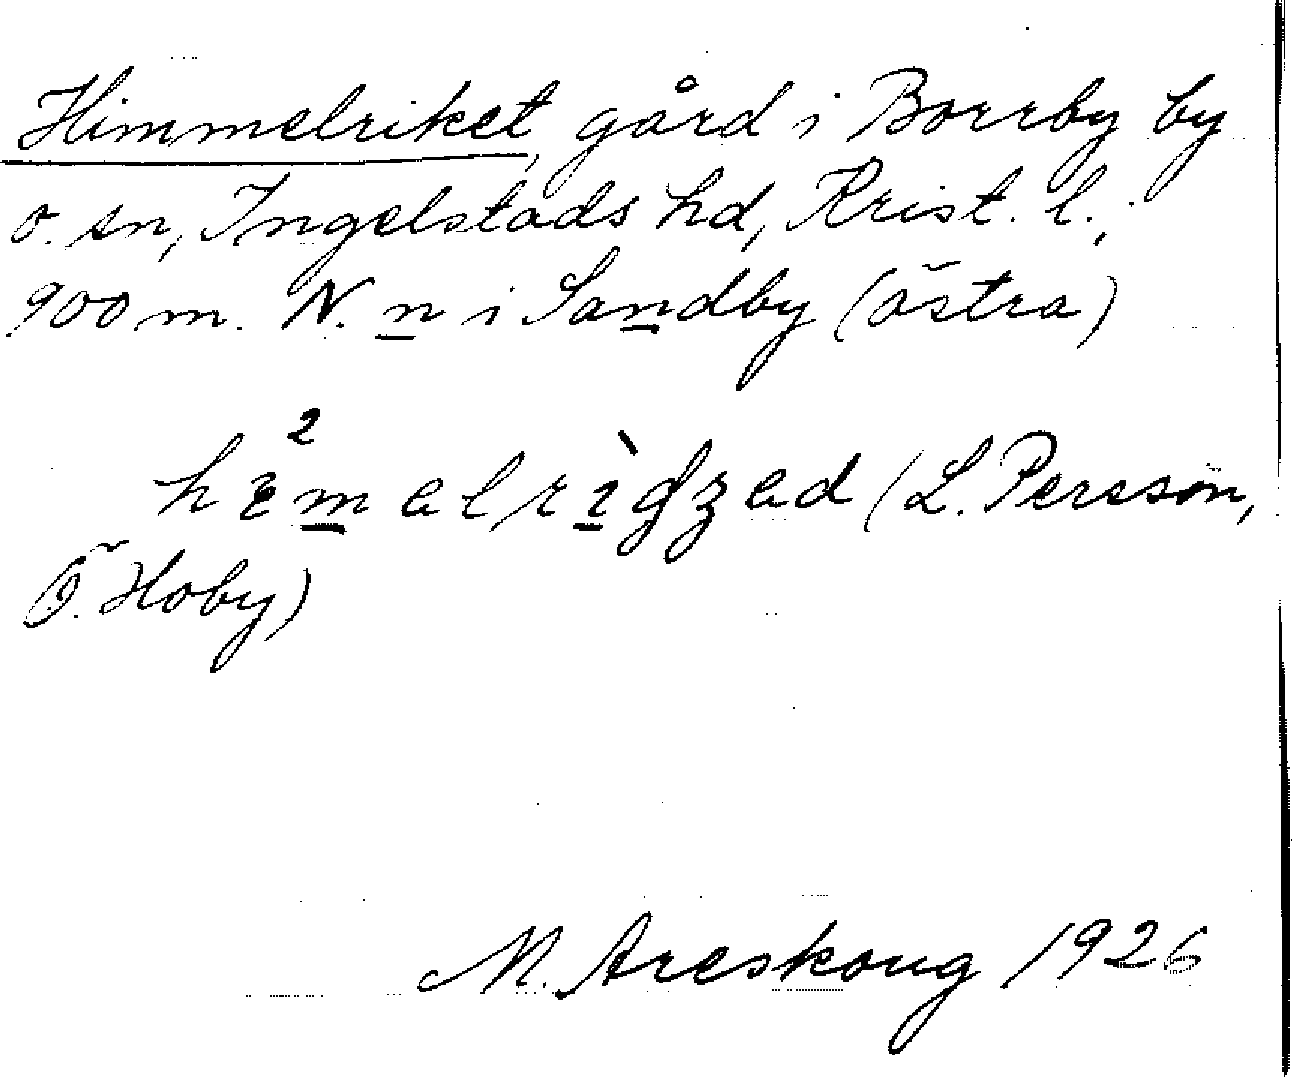 Himmelriket, gård i Borrby by
o. sn, Ingelstads hd, Krist. l.,
900 m. N. n i Sandby (östra)
(L. Persson,
Ö. Hoby)
M. Areskoug 1926